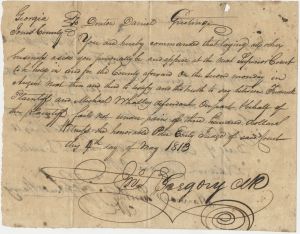 Georgia To Doctor Daniel Greeting
County
You are hereby commanded that laying all other
business aside you personally be and appear at the next Superior Court
to be held in and for the County aforesaid on the second monday in
august next then and there to testify and the truth to say between
Plaintiff and Michael Whatley defendant on part & behalf of
the Plaintiff fails not under pain of three hundred dollars
Witness the honorable Peter Early Judge of said court
this 4th day of May 1813
Gregory Clk